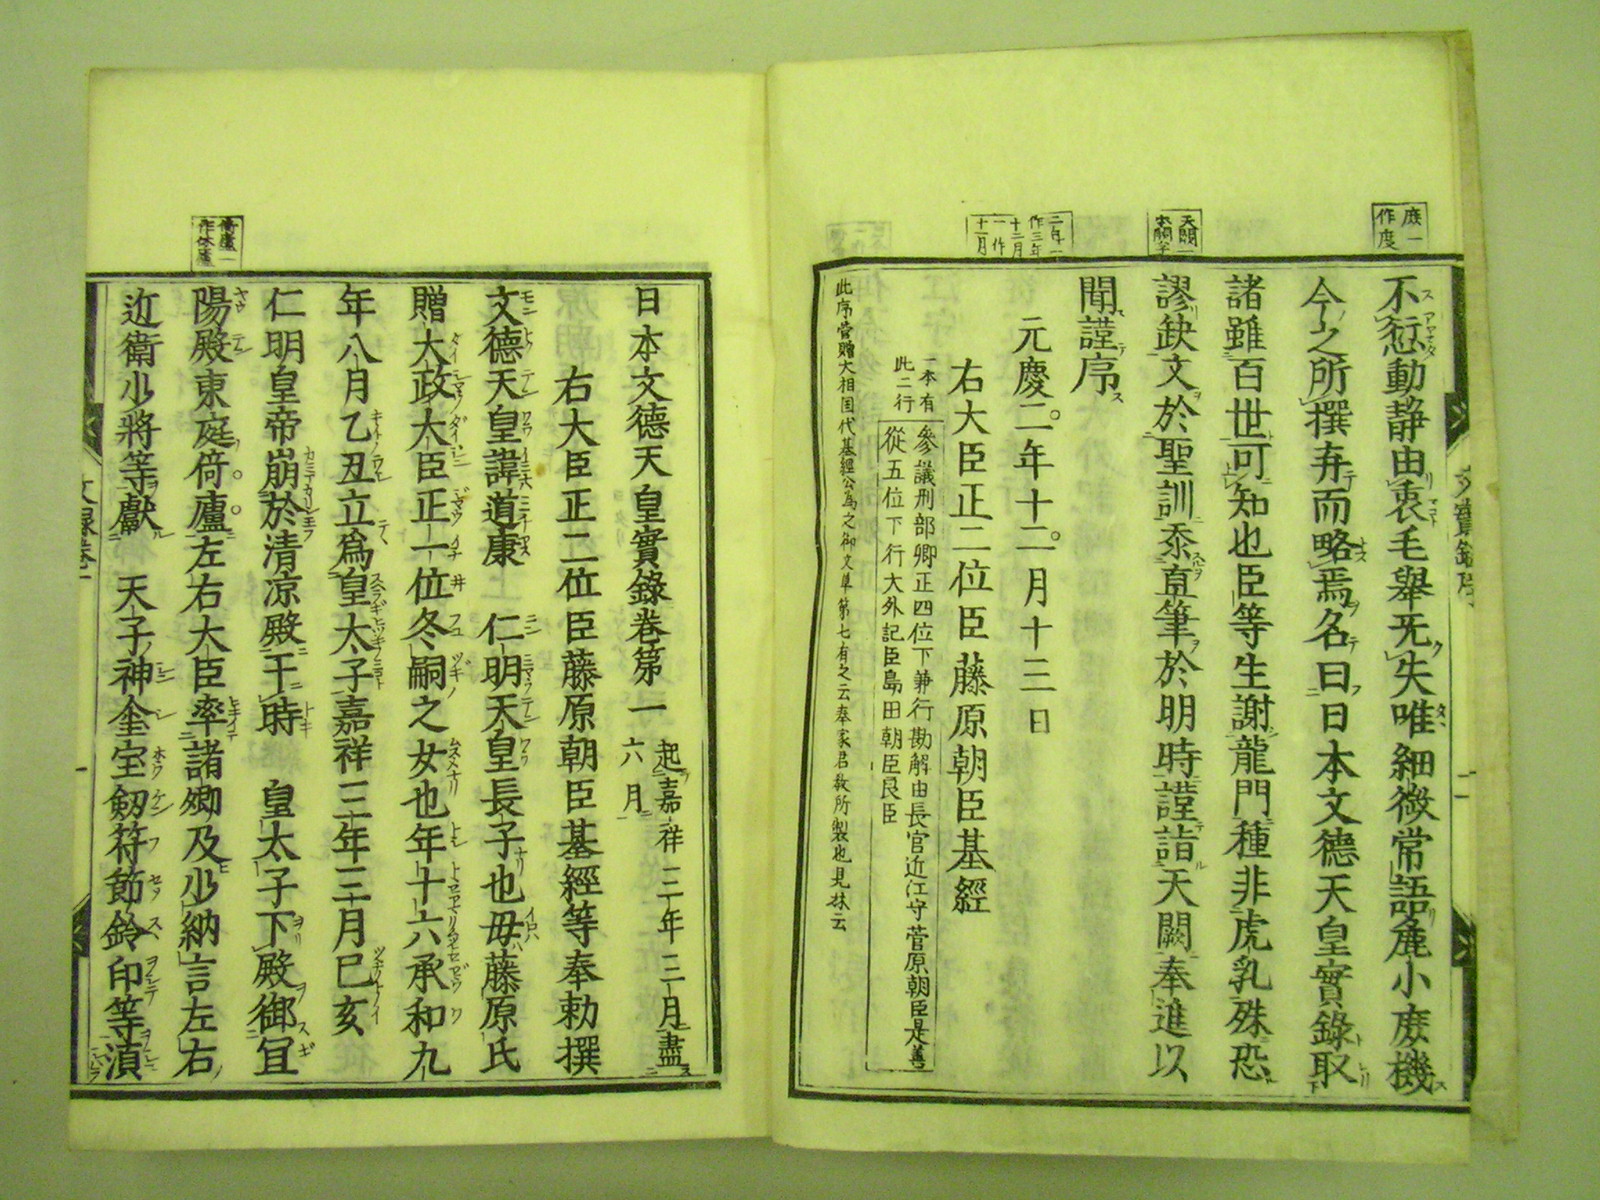 庶一
作度
不愆動靜由衷毛舉无失唯細微常語麁小庶機
今之所撰弃而略焉名曰日本文德天皇實錄取
諸雖百世可知也臣等生謝龍門種非虎乳殊恐
天闕一
謬缺文於聖訓忝直筆於明時謹詣天闕奉進以
聞謹序
二年一
作三年
十二月
一作
十一月
元慶二年十二月十三日
右大臣正二位臣藤原朝臣基經
一本有
此二行
參議刑部卿正四位下兼行勘解由長官近江守菅原朝臣是善
從五位下行大外記臣島田朝臣良臣
此序菅贈大相國代基經公為之御文草第七有之云奉家君教所製也見抹云
文實錄序
二
日本文德天皇實錄卷第一
起嘉祥三年三月盡
六月
右大臣正二位臣藤原朝臣基經等奉勅撰
文德天皇諱道康 仁明天皇長子也母藤原氏
贈大政大臣正一位冬嗣之女也年十六承和九
年八月乙丑立爲皇太子嘉祥三年三月己亥
仁明皇帝崩於清凉殿干時 皇太子下殿御宜
倚廬一
作休廬
陽殿東庭倚廬左右大臣率諸卿及少納言左右
近衛少將等獻 天子神璽宝劔符節鈴印等湏
文錄卷一
一